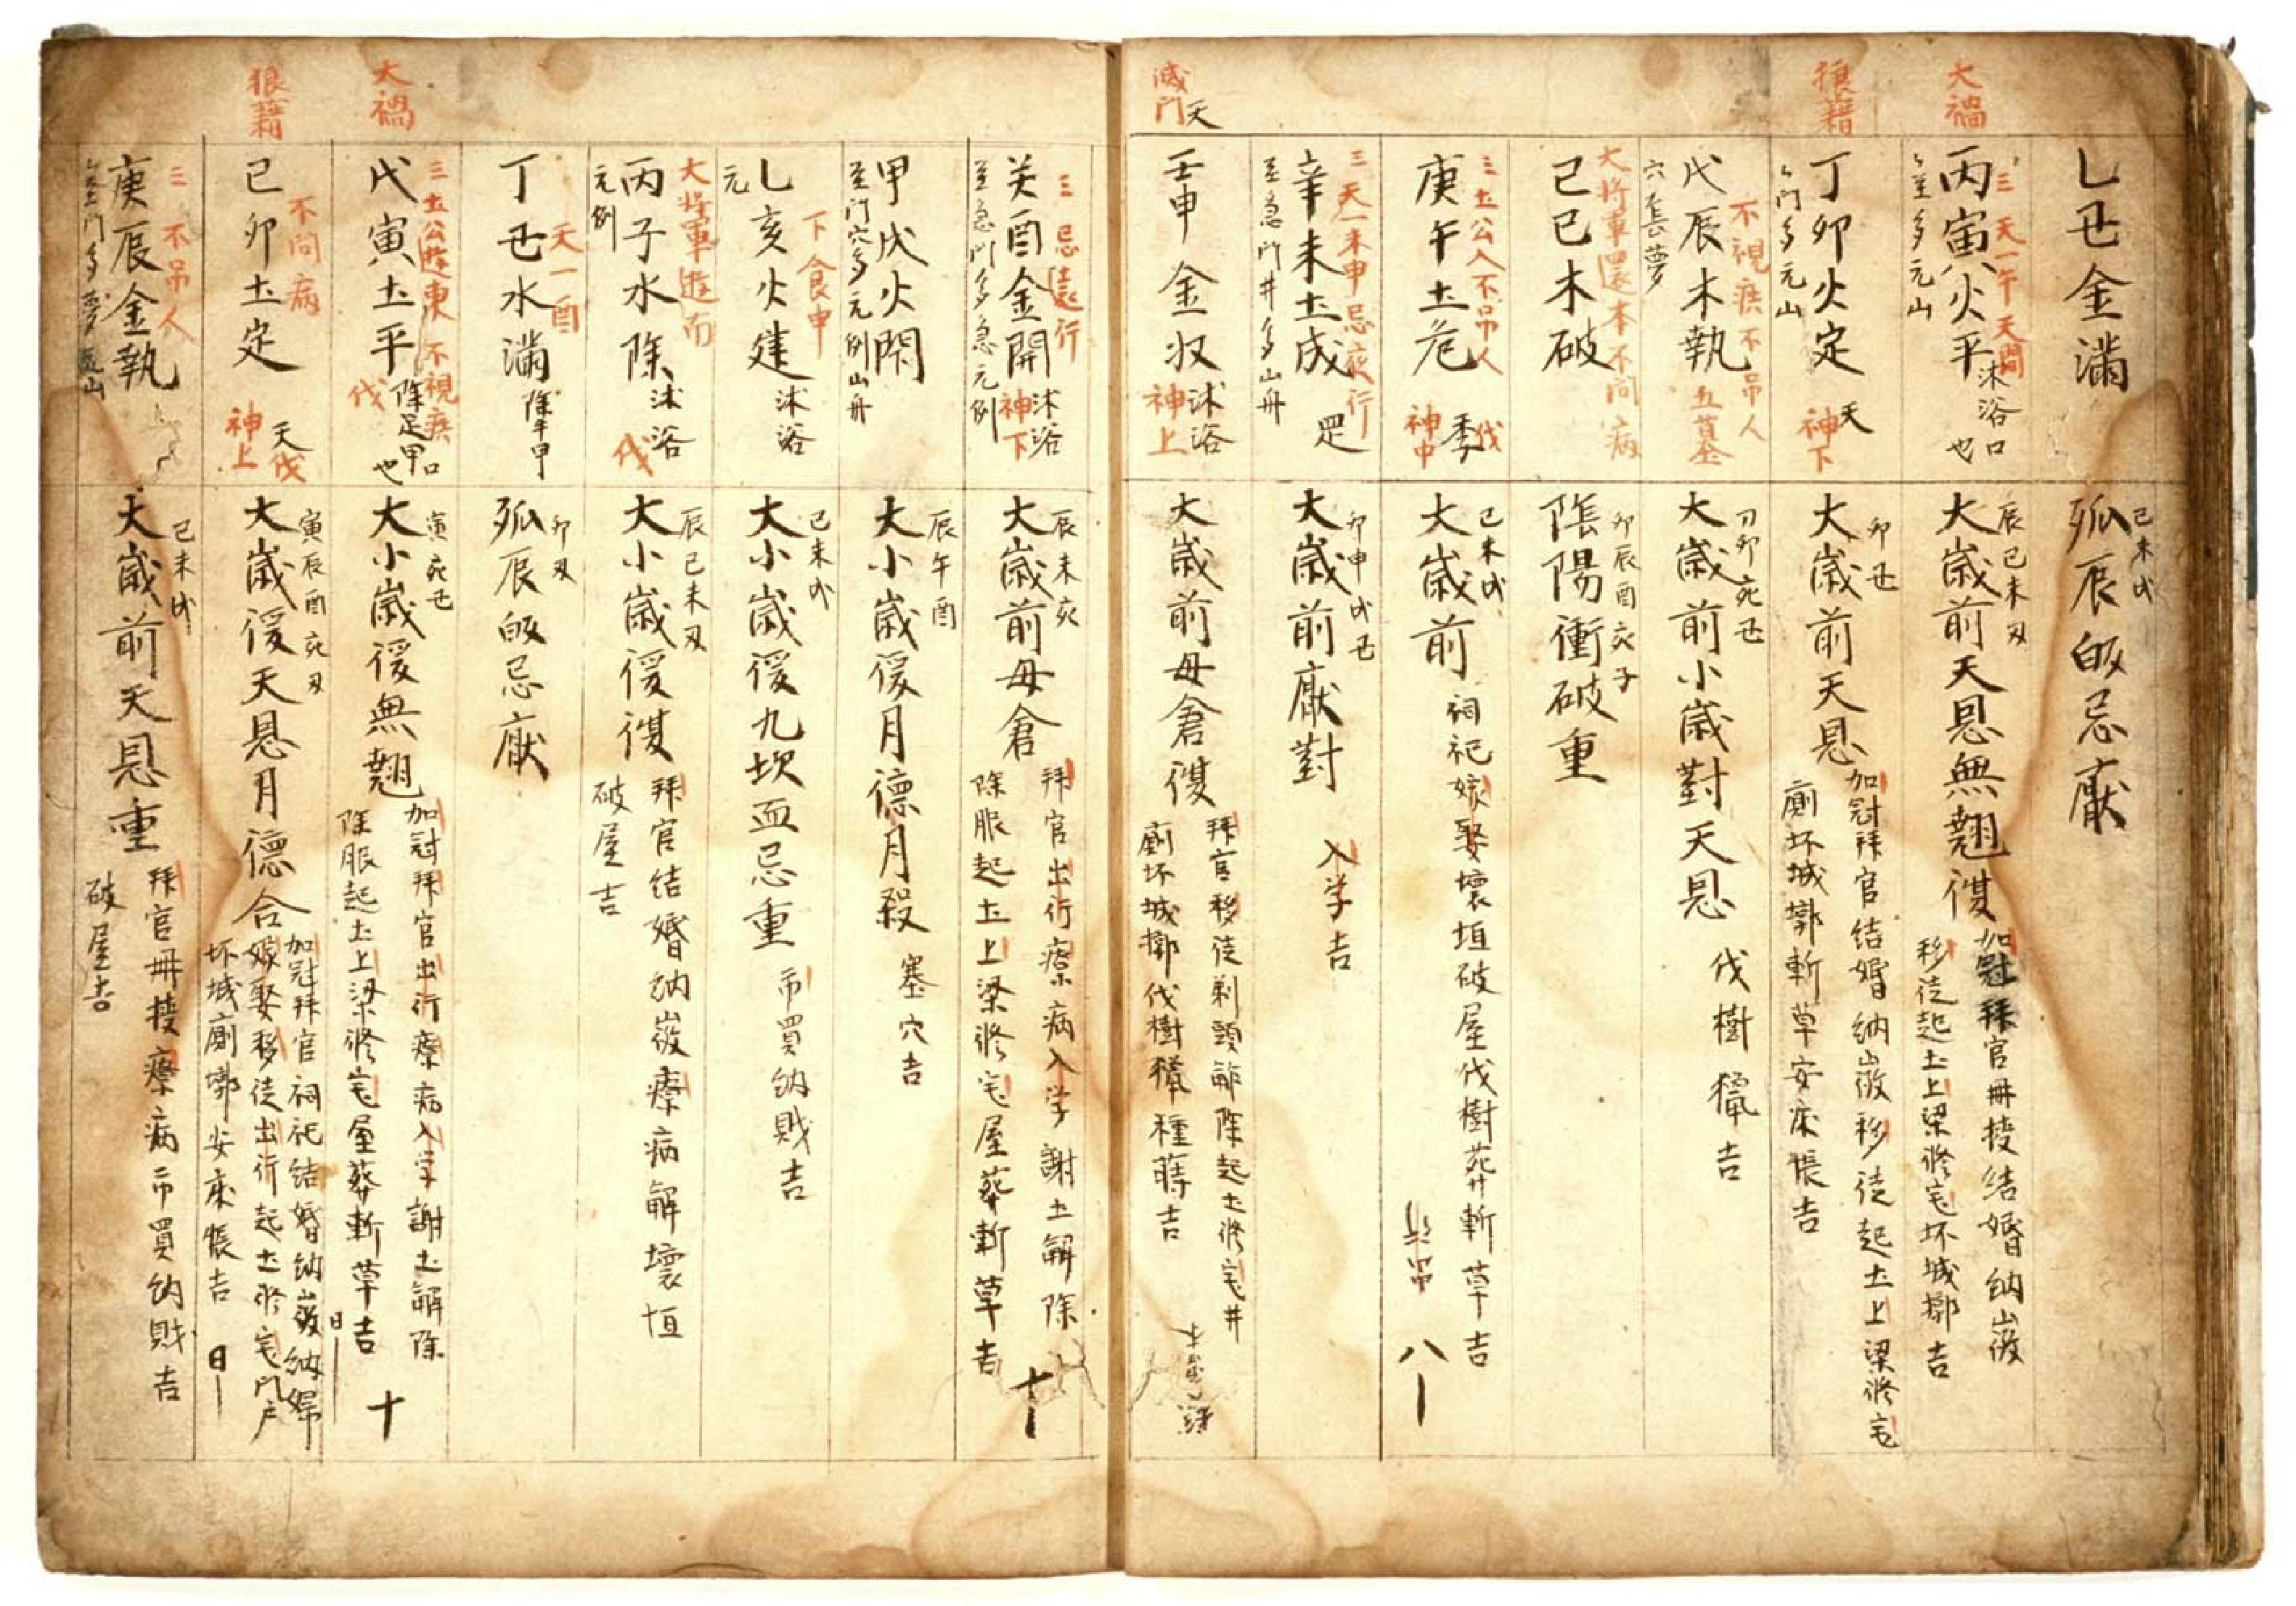 大禍
狼藉
滅門
天
乚丑金満
孤辰皈忌厭
三 天一午 天間
丙寅火平
沐浴口
也
辰巳未刄
大歳前天恩無翹復
加冠拜官冊授結婚納徴
移徒起土上梁修宅坏城墎吉
丁卯火定
神下
天
卯丑
大歳前天恩
加冠拜官結婚納徴移徒起土上梁修宅
廁坏城墎斬草安床帳吉
不視疾不吊人
戊辰木執
五墓
大歳前小歳對天恩
伐樹 猟吉
大将軍還本不問病
己巳木破
卯辰酉
陰陽衝破重
三 土公入不吊人
庚午土危
伐
季
神中
大歳前
祠祀嫁娶壊垣破屋伐樹葬斬草吉
八
三 天一未申忌夜行
辛未土成
罡
大歳前厭對
入学吉
壬申金収
沐浴
神上
大歳前母倉復
拜官移徒剃頭解除起土修宅井
廁坏城墎伐樹猟種蒔吉
三 忌遠行
癸酉金開
沐浴
神下
大歳前母倉
拜官出行療病入学謝土解除
除服起土上梁修宅屋葬斬草吉
十
甲戌火閇
辰午酉
大小歳後月德月殺
塞穴吉
下食申
乚亥火建
沐浴
元
大小歳後九坎血忌重
市買納財吉
大将軍遊南
丙子水除
沐浴
伐
元例
辰巳未刄
大小歳後復
拜官結婚納徴療病解壊垣
破屋吉
天一酉
丁丑水満
除手甲
卯刄
孤辰皈忌厭
大禍
三 土公遊東 不視疾
戊寅土平
除足甲
也
伐
大小歳後無翹
加冠拜官出行療病入学謝土解除
除服起土上梁修宅屋葬斬草吉
十
狼藉
不問病
己卯土定
天
伐
神上
寅辰酉
大歳後天恩月德合
加冠拜官祠祀結婚納徴納婦
嫁娶移徒出行起土修宅門戸
坏城廁墎安床帳吉
三 不吊人
庚辰金執
大歳前天恩重
拜官冊授療病市買納財吉
破屋吉